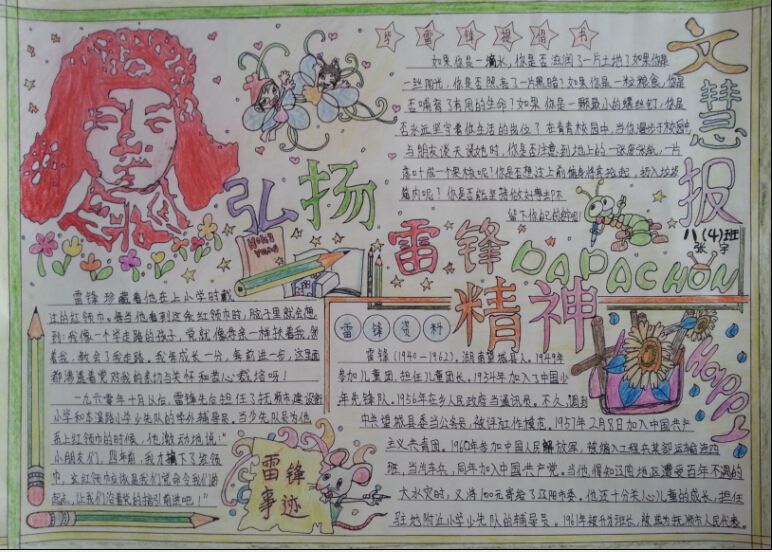 学雷锋倡议书
文慧报
八(4)班
张宇
如果你是一滴水,你是否滋润了一片土地?如果你是
一线阳光,你是否照亮了一片黑暗?如果你是一粒粮食,你是
否哺育了有用的生命?如果你是一颗最小的螺丝钉,你是
否永远坚守着你生活的岗位?在青青校园中,当你漫步于校园
与朋友谈天说地时,你是否注意到地上的一张废纸,一片
落叶或一个果核呢?
箱内呢?
弘扬
雷锋
精神
DAPACHON
Happy
雷锋珍藏着他在上小学时戴
过的红领巾。每当他看到这条红领巾时,脑子里就会想
到:我像一个学走路的孩子,党就像母亲一样扶着我,领
着我,教会了我走路。我每成长一分,每前进一步,这里面
都渗透着党对我的亲切与关怀和苦心栽培呀!
一九六零年十月以后,雷锋先后担任了抚顺市建设街
小学和本溪路小学少先队的校外辅导员。当少先队员为他
系上红领巾的时候,他激动地说:"
小朋友们,四年前,我才摘下了红领
巾,
起点,让我们沿着党的指引前进吧!"
雷锋
事迹
雷锋资料
雷锋(1940-1962),湖南望城县人。1949年
参加儿童团,担任儿童团长。1954年加入了中国少
年先锋队。1956年在乡人民政府当通讯员。不久,调到
中共望城县委当公务员,被评为工作模范。1957年2月8日加入中国共产
主义共青团。1960年参加中国人民解放军,被编入工程兵某部运输连四
班,当汽车兵,同年加入中国共产党。当他得知辽阳地区遭受百年不遇的
大水灾时,又将100元寄给了辽阳市委。他还十分关心儿童的成长,担任
驻地附近小学少先队的辅导员。1961年被升为班长,被选为抚顺市人民代表。